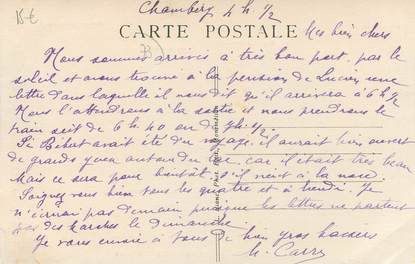 15 €
Chambéry 4 h. 1/2
CARTE POSTALE
Mes bien chers
Nous sommes arrivés à très bon port, pas le
soleil et avons trouvé à la pension de Lucien une
lettre dans laquelle il nous dit qu'il arrivera à 6 h 1/2
Nous l'attendrons à la sortie et nous prendrons le
train soit de 6 h. 40 ou de 7 h. 1/2
Si avait été du voyage, il aurait bien ouvert
de grands yeux autour du lac, car il était très beau
Mais ce sera pour bientôt, s'il vient à la noce.
Soignez vous bien tous les quatre et à lundi. Je
n'écrirai pas demain puisque les lettres ne partent
pas des Marches le Dimanche.
Je vous envoie à tous de bien gros baisers